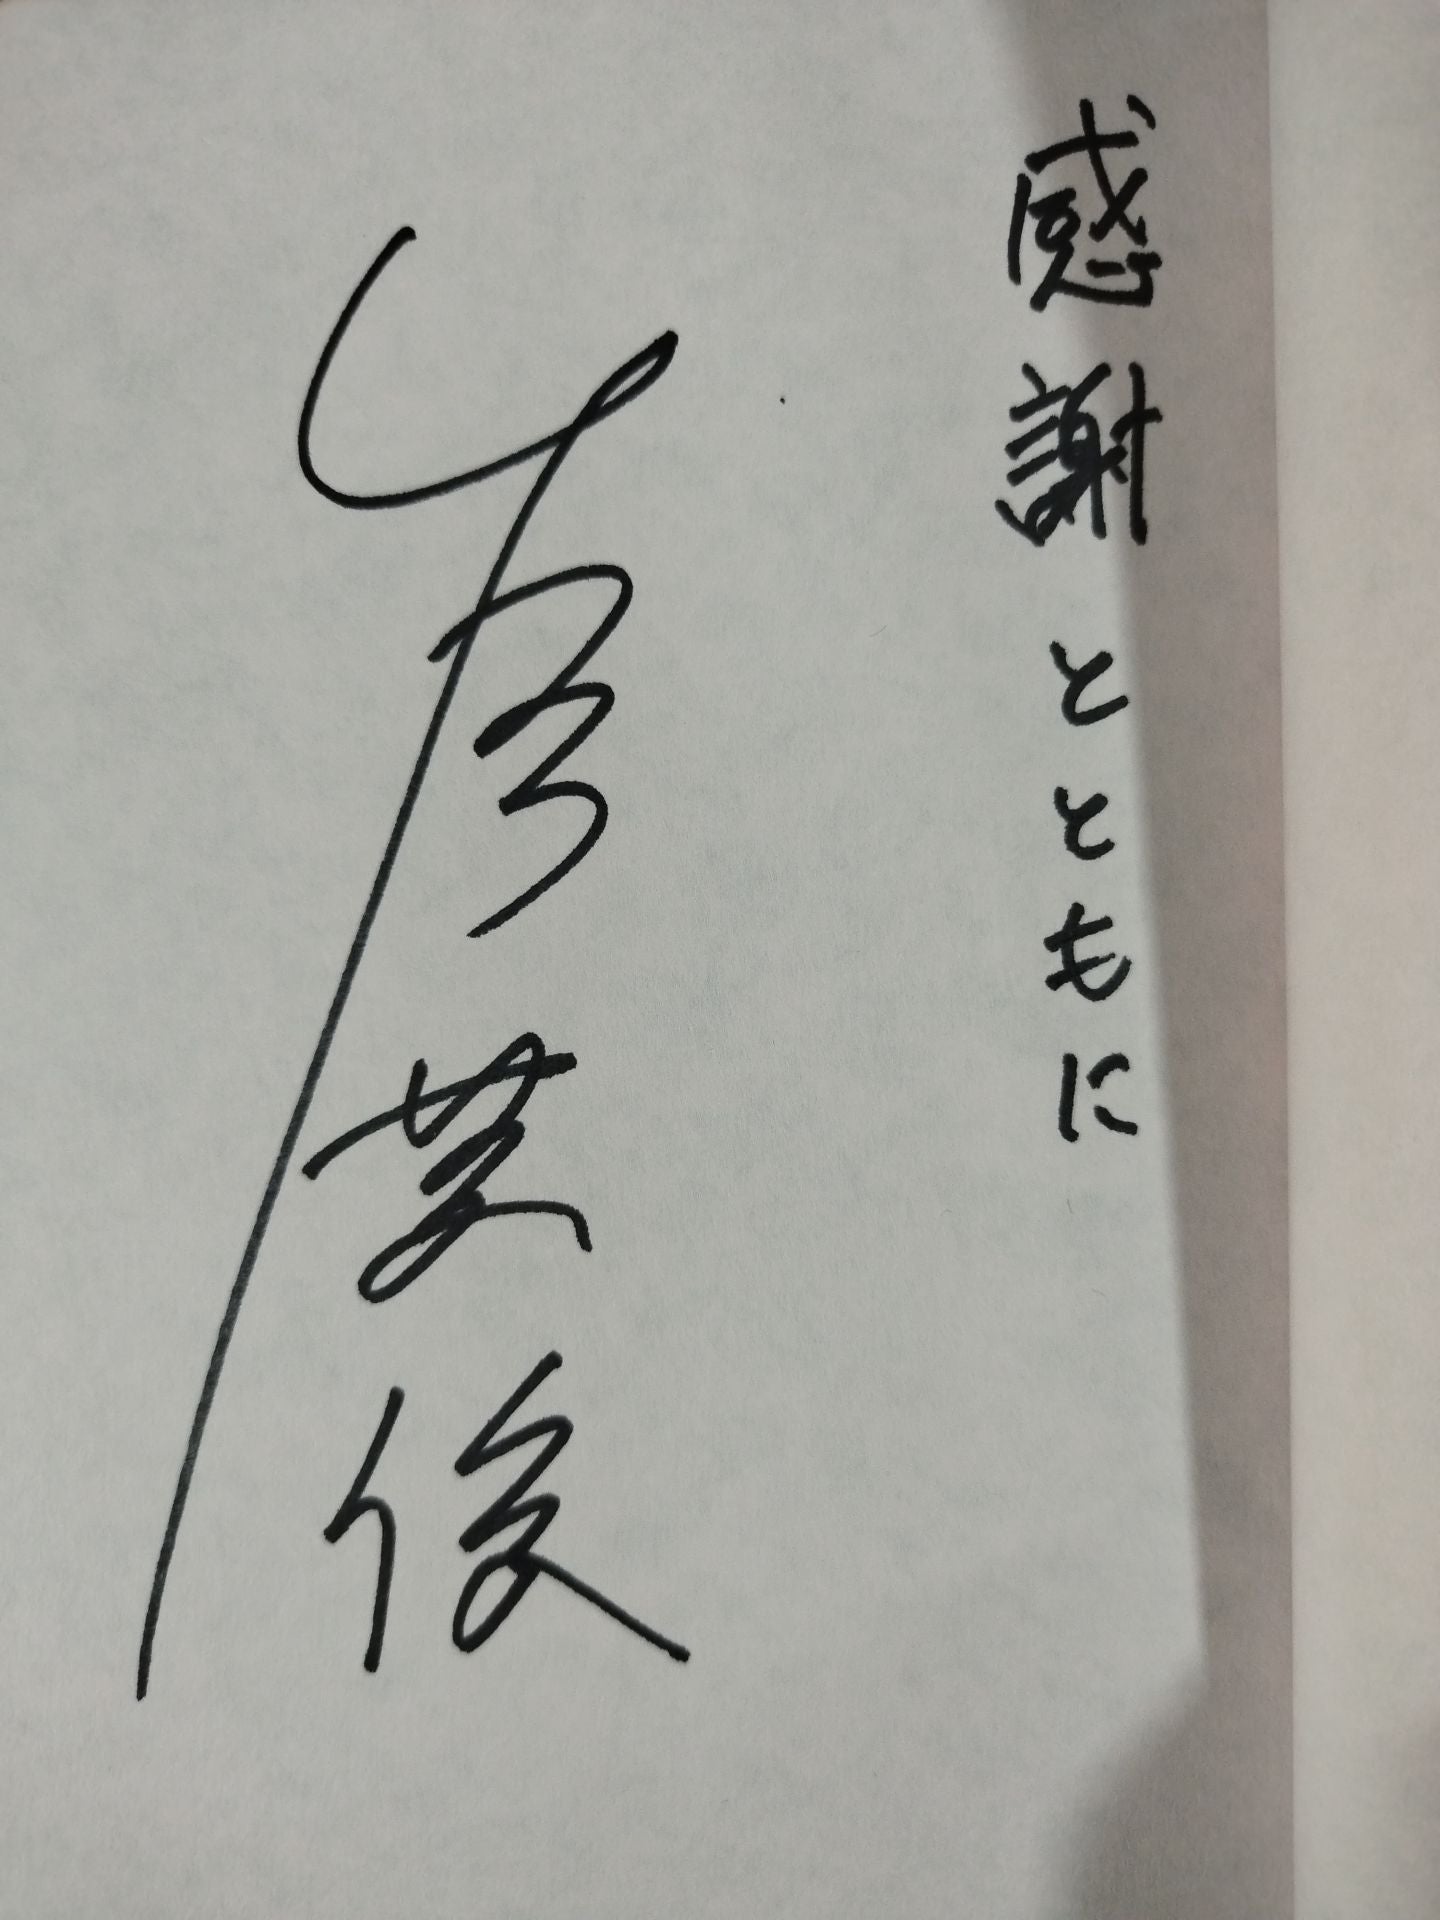 感謝とともに
英俊